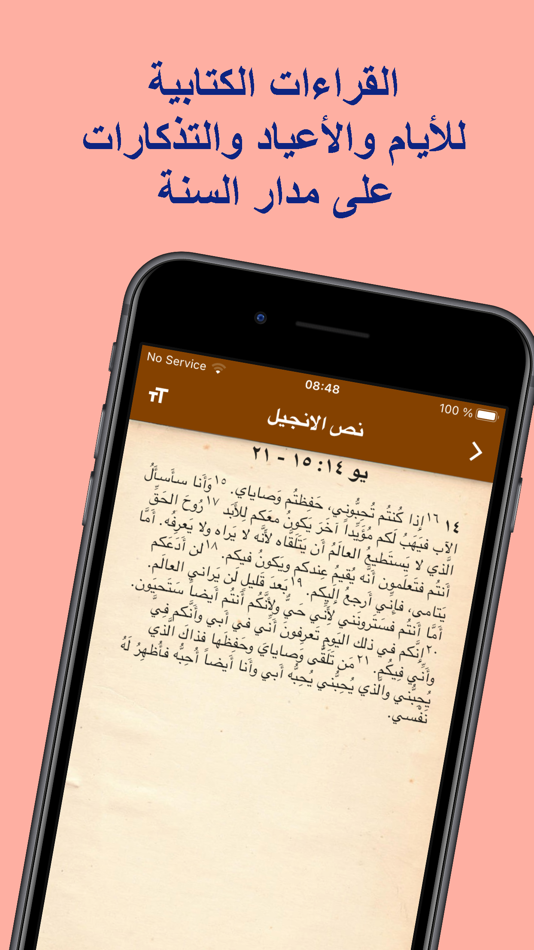 القراءات الكتابية
للأيام والأعياد والتذكارات
على مدار السنة
No Service
08:48
100 %
TT
نص الانجيل
يو ١٤: ١٥ - ٢١
١٤ ١٦إذا كُنتُم تُحِبُّوني، حَفِظتُم وَصاياي. ١٥وَأَنا سأَسأَلُ
الآب فيَهَبُ لَكم مُؤَيِّداً آخَرَ يَكونُ معَكم لِلأَبَد ١٧رُوحَ الحَقِّ
الَّذي لا يَستَطيعُ العالَمُ أَن يَتَلَقَّاه لأَنَّه لا يَراه ولا يَعرِفُه. أَمَّا
أَنتُم فتَعلَمون أَنَّه يُقيمُ عِندكم ويَكونُ فيكم. ١٨لن أَدَعَكم
يَتامى، فإِنِّي أَرجعُ إِلَيكم. ١٩بَعدَ قَليلٍ لَن يَراني العالَم.
أَمَّا أَنتُم فسَتَرونَني لِأَنِّي حَيٌّ ولأَنَّكُم أَنتُم أَيضاً سَتَحيَون.
٢٠إِنَّكم في ذلك اليَومِ تَعرِفونَ أَنِّي في أبي وأَنَّكم فِيَّ
وأَنِّي فِيكُم. ٢١مَن تَلَقَّى وَصايايَ وحَفِظَها فذاكَ الَّذي
يُحِبُّني والَّذي يُحِبُّني يُحِبُّه أَبي وأَنا أَيضاً أُحِبُّه فأُظهِرُ لَهُ
نَفْسي.